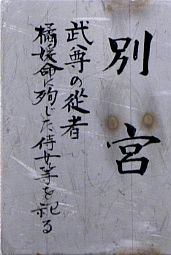 別宮
武尊の従者
橘媛命に殉じた侍女等を祀る